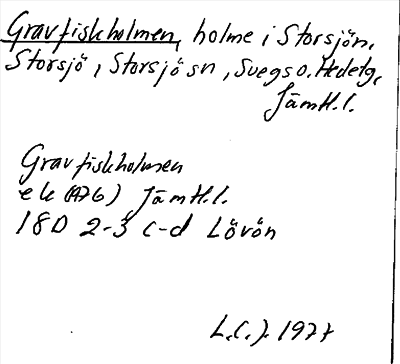 Gravfiskholmen, holme i Storsjön,
Storsjö, Storsjö sn, Svegs o. Hedetg,
Jämtl. l.
Gravfiskholmen
ek (1976) Jämtl. l.
18D 2-3 c-d Lövön
L.C.J. 1977